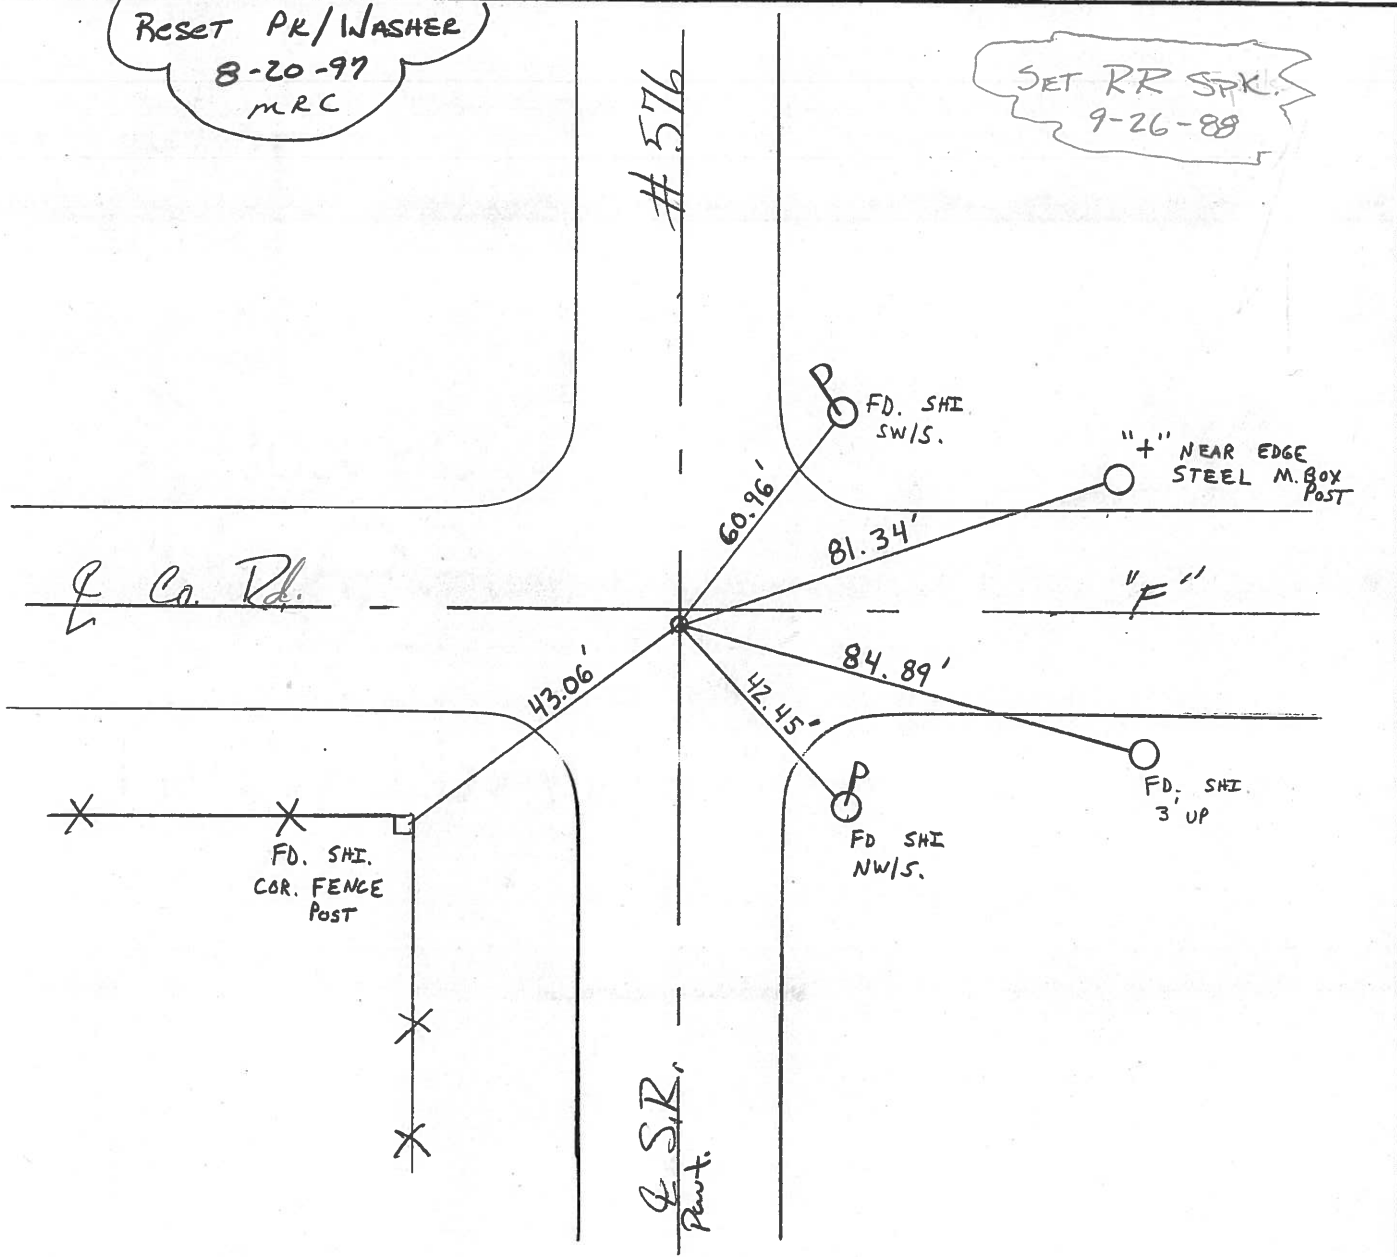 RESET PK/WASHER
8-20-97
MRC
SET RR SPK.
9-26-88
# 576
P
FD. SHI.
SW/S.
"+" NEAR EDGE
STEEL M. BOX
POST
60.96'
81.34'
℄ Co. Rd.
"F"
43.06'
84.89'
42.45'
P
FD. SHI.
3' UP
FD SHI
NW/S.
FD. SHI.
COR. FENCE
POST
℄ S.R.
Pvmt.